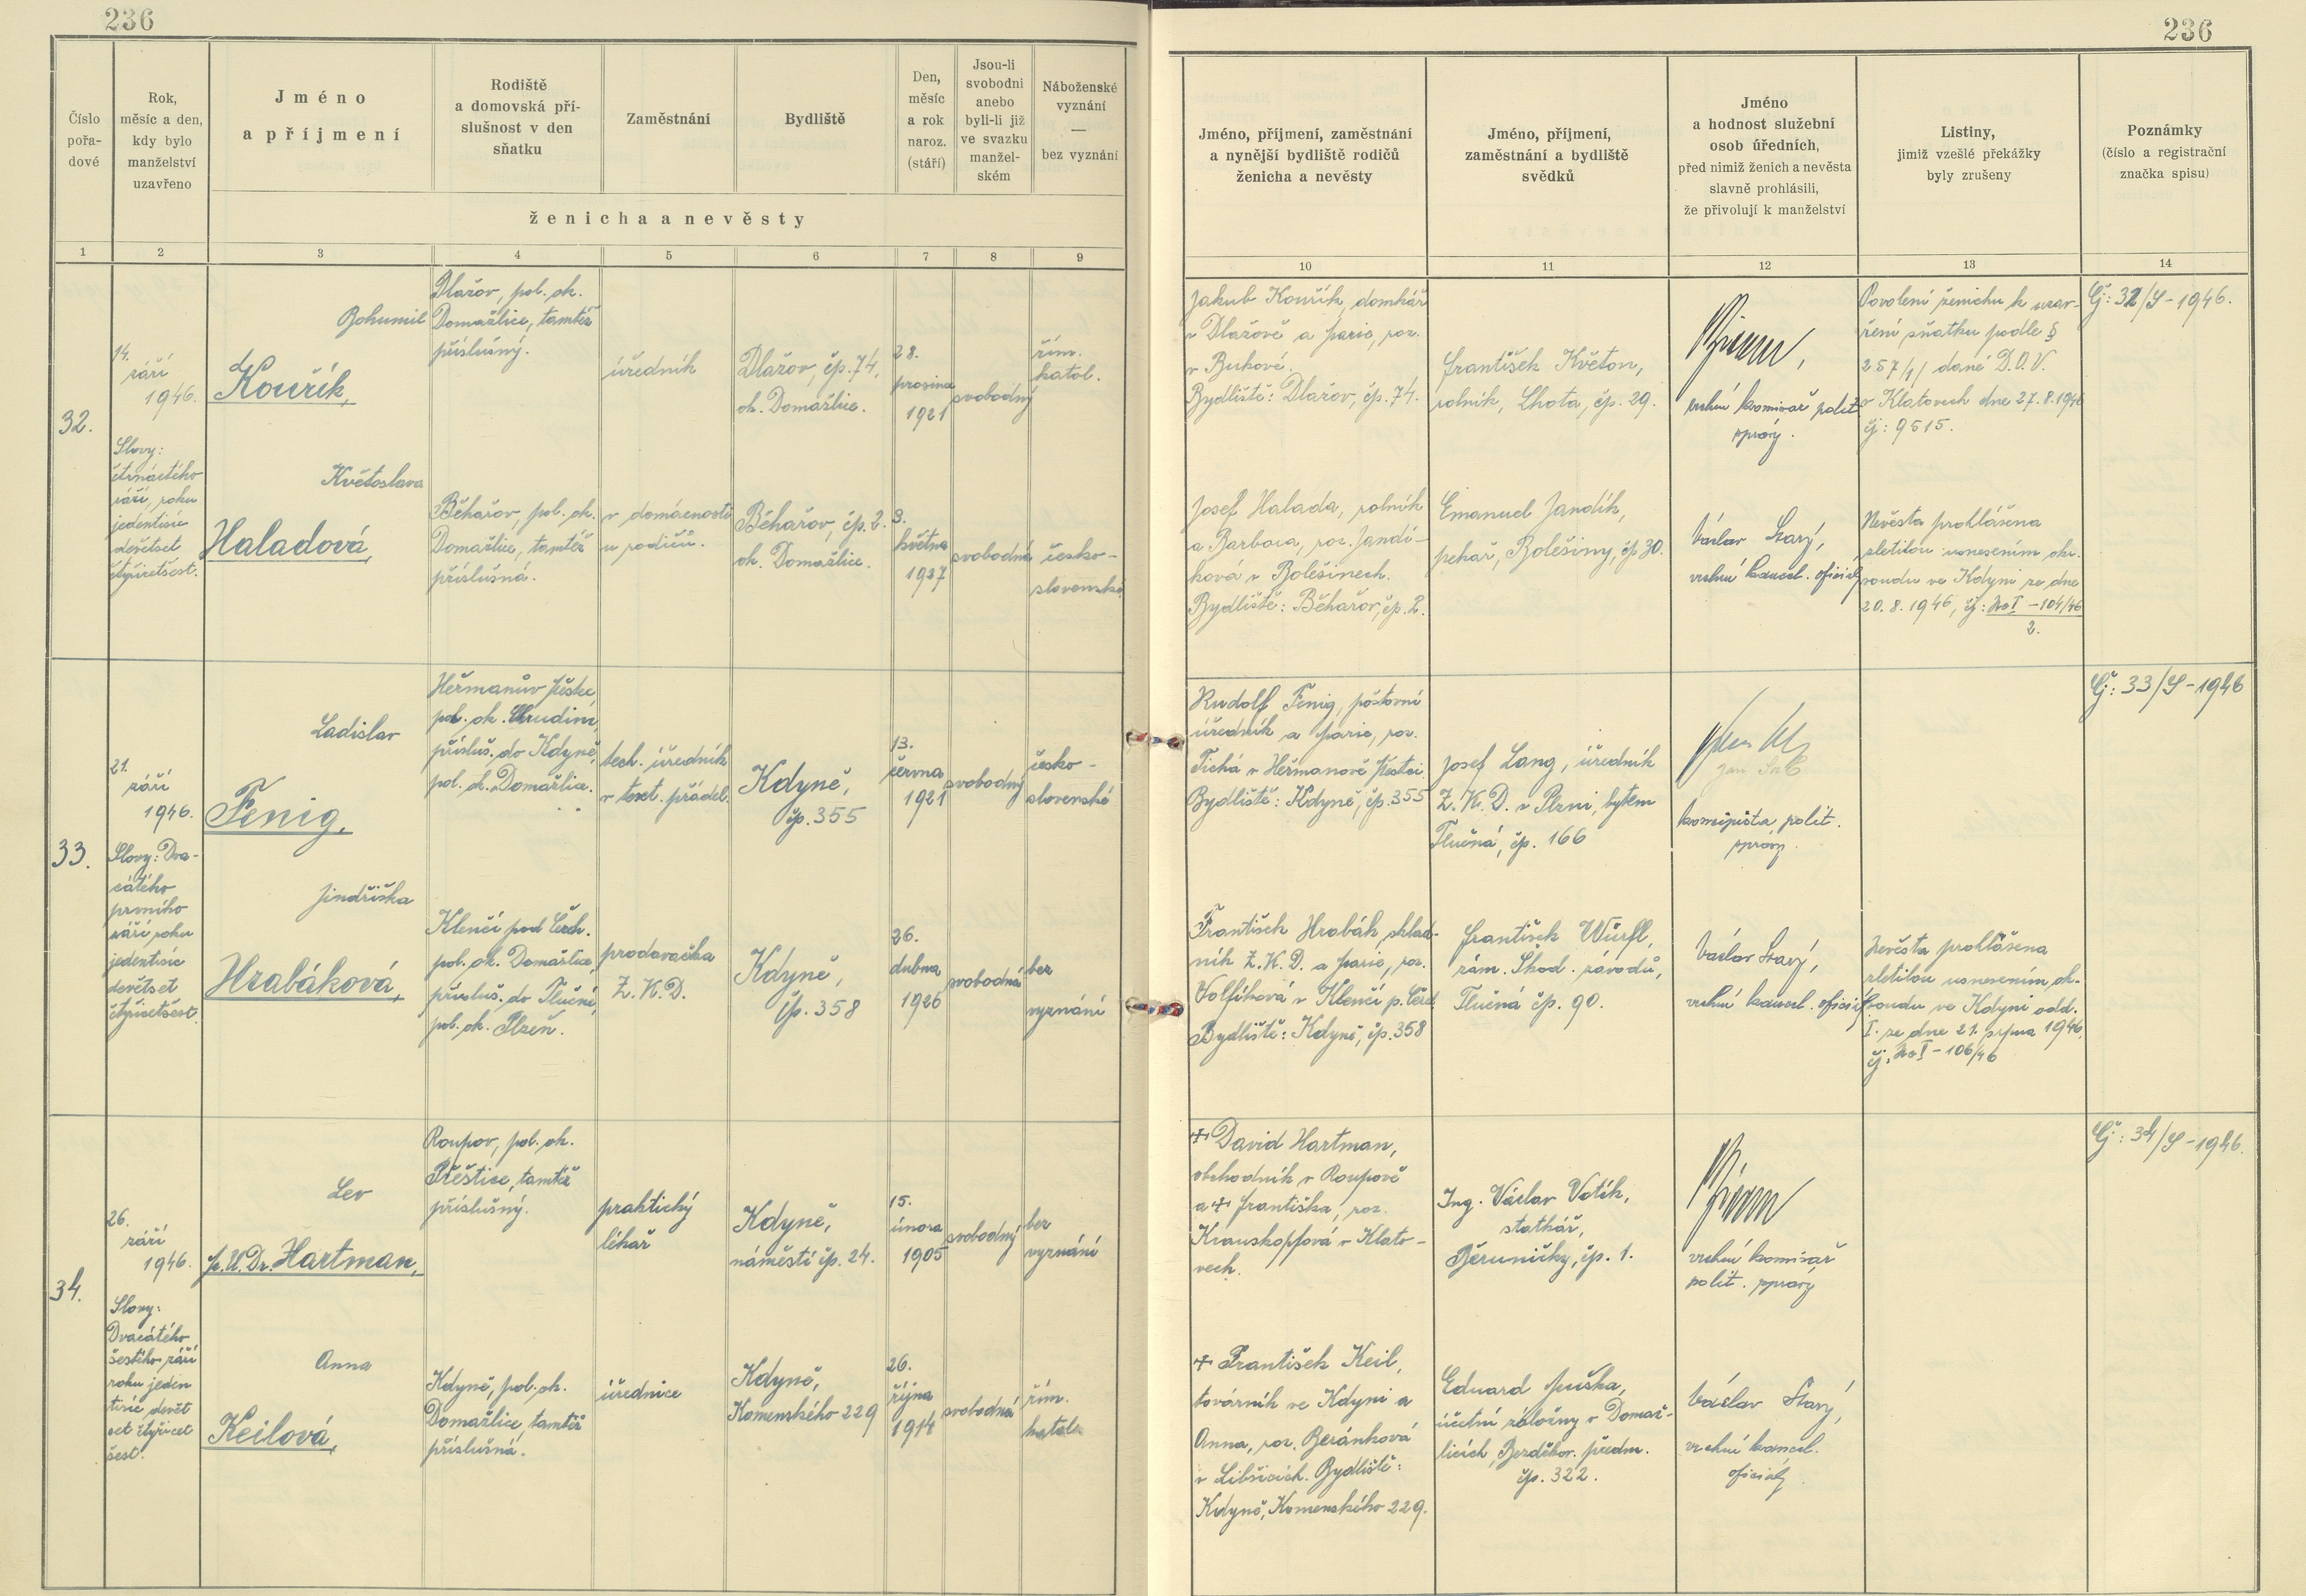 236
236
Číslo
pořa-
dové
Rok,
měsíc a den,
kdy bylo
manželství
uzavřeno
Jméno
a příjmení
Rodiště
a domovská pří-
slušnost v den
sňatku
Zaměstnání
Bydliště
Den,
měsíc
a rok
naroz.
(stáří)
Jsou-li
svobodni
anebo
byli-li již
ve svazku
manžel-
ském
Náboženské
vyznání
—
bez vyznání
ženicha a nevěsty
Jméno, příjmení, zaměstnání
a nynější bydliště rodičů
ženicha a nevěsty
Jméno, příjmení,
zaměstnání a bydliště
svědků
Jméno
a hodnost služební
osob úředních,
před nimiž ženich a nevěsta
slavně prohlásili,
že přivolují k manželství
Listiny,
jimiž vzešlé překážky
byly zrušeny
Poznámky
(číslo a registrační
značka spisu)
1
2
3
4
5
6
7
8
9
10
11
12
13
14
32.
14.
září
1946.
Slovy:
čtrnáctého
září, roku
jedentisíc
devětset
čtyřicetšest.
Bohumil
Kouřík,
Dlažov, pol. ok.
Domažlice, tamtéž
příslušný.
úředník
Dlažov, čp. 74,
ok. Domažlice.
28.
prosince
1921
svobodný
řím.
katol.
Jakub Kouřík, domkář
v Dlažově a Marie, roz.
v Bukové.
Bydliště: Dlažov, čp. 74.
František Květon,
rolník, Lhota, čp. 29.
vrchní komisař polit.
správy.
Povolení ženichu k uzav-
ření sňatku podle §
257/1/ dané D.O.V.
v Klatovech dne 27.8.1946
čj: 9515.
Čj: 32/S-1946.
Květoslava
Haladová,
Běhařov, pol. ok.
Domažlice, tamtéž
příslušná.
v domácnosti
u rodičů.
Běhařov, čp. 2.
ok. Domažlice.
3.
května
1927
svobodná
česko-
slovenské
Josef Halada, rolník
a Barbora, roz. Jandí-
ková v Bolešinech.
Bydliště: Běhařov, čp. 2.
Emanuel Jandík,
pekař, Bolešiny, čp 30.
Václav Starý,
vrchní kancel. oficiál
Nevěsta prohlášena
zletilou usnesením okr.
soudu ve Kdyni ze dne
20.8.1946, čj: Nc I - 104/46
2.
33.
21.
září
1946.
Slovy: Dva-
cátého
prvního
září roku
jedentisíc
devětset
čtyřicetšest.
Ladislav
Fenig,
Heřmanův Městec,
pol. ok. Chrudim,
přísluš. do Kdyně,
pol. ok. Domažlice.
tech. úředník
v text. přádel.
Kdyně,
čp. 355
13.
června
1921
svobodný
česko-
slovenské
Rudolf Fenig, poštovní
úředník a Marie, roz.
Tichá v Heřmanově Městci.
Bydliště: Kdyně, čp. 355
Josef Lang, úředník
Z.K.D. v Plzni, bytem
Tlučná, čp. 166
koncipista polit.
správy.
Čj: 33/S-1946
Jindřiška
Hrabáková,
Klenčí pod Čerch.
pol. ok. Domažlice,
přísluš. do Tlučné,
pol. ok. Plzeň.
prodavačka
Z.K.D.
Kdyně,
čp. 358
26.
dubna
1926
svobodná
bez
vyznání
František Hrabák, sklad-
ník Z.K.D. a Marie, roz.
Volfíková v Klenčí p. Čerch.
Bydliště: Kdyně, čp. 358
František Würfl,
zám. Škod. závodů,
Tlučná čp. 90.
Václav Starý,
vrchní kancel. oficiál
Nevěsta prohlášena
zletilou usnesením ok.
soudu ve Kdyni odd.
I. ze dne 21. srpna 1946,
čj. Nc I - 106/46
34.
26.
září
1946.
Slovy:
Dvacátého
šestého září
roku jeden
tisíc devět
set čtyřicet
šest.
Lev
M.U.Dr. Hartman,
Roupov, pol. ok.
Přeštice, tamtéž
příslušný.
praktický
lékař
Kdyně,
náměstí čp. 24.
15.
února
1905
svobodný
bez
vyznání
+ David Hartman,
obchodník v Roupově
a + Františka, roz.
Krauskopfová v Klato-
vech.
Ing. Václav Votík,
statkář,
čp. 1.
vrchní komisař
polit. správy
Čj: 34/S-1946.
Anna
Keilová,
Kdyně, pol. ok.
Domažlice, tamtéž
příslušná.
úřednice
Kdyně,
Komenského 229
26.
října
1914
svobodná
řím.
katol.
+ František Keil,
továrník ve Kdyni a
Anna, roz. Beránková
v Libšicích. Bydliště:
Kdyně, Komenského 229.
Eduard Muška,
účetní záložny v Domaž-
licích, Bezděkov. předm.
čp. 322.
Václav Starý,
vrchní kancel.
oficiál